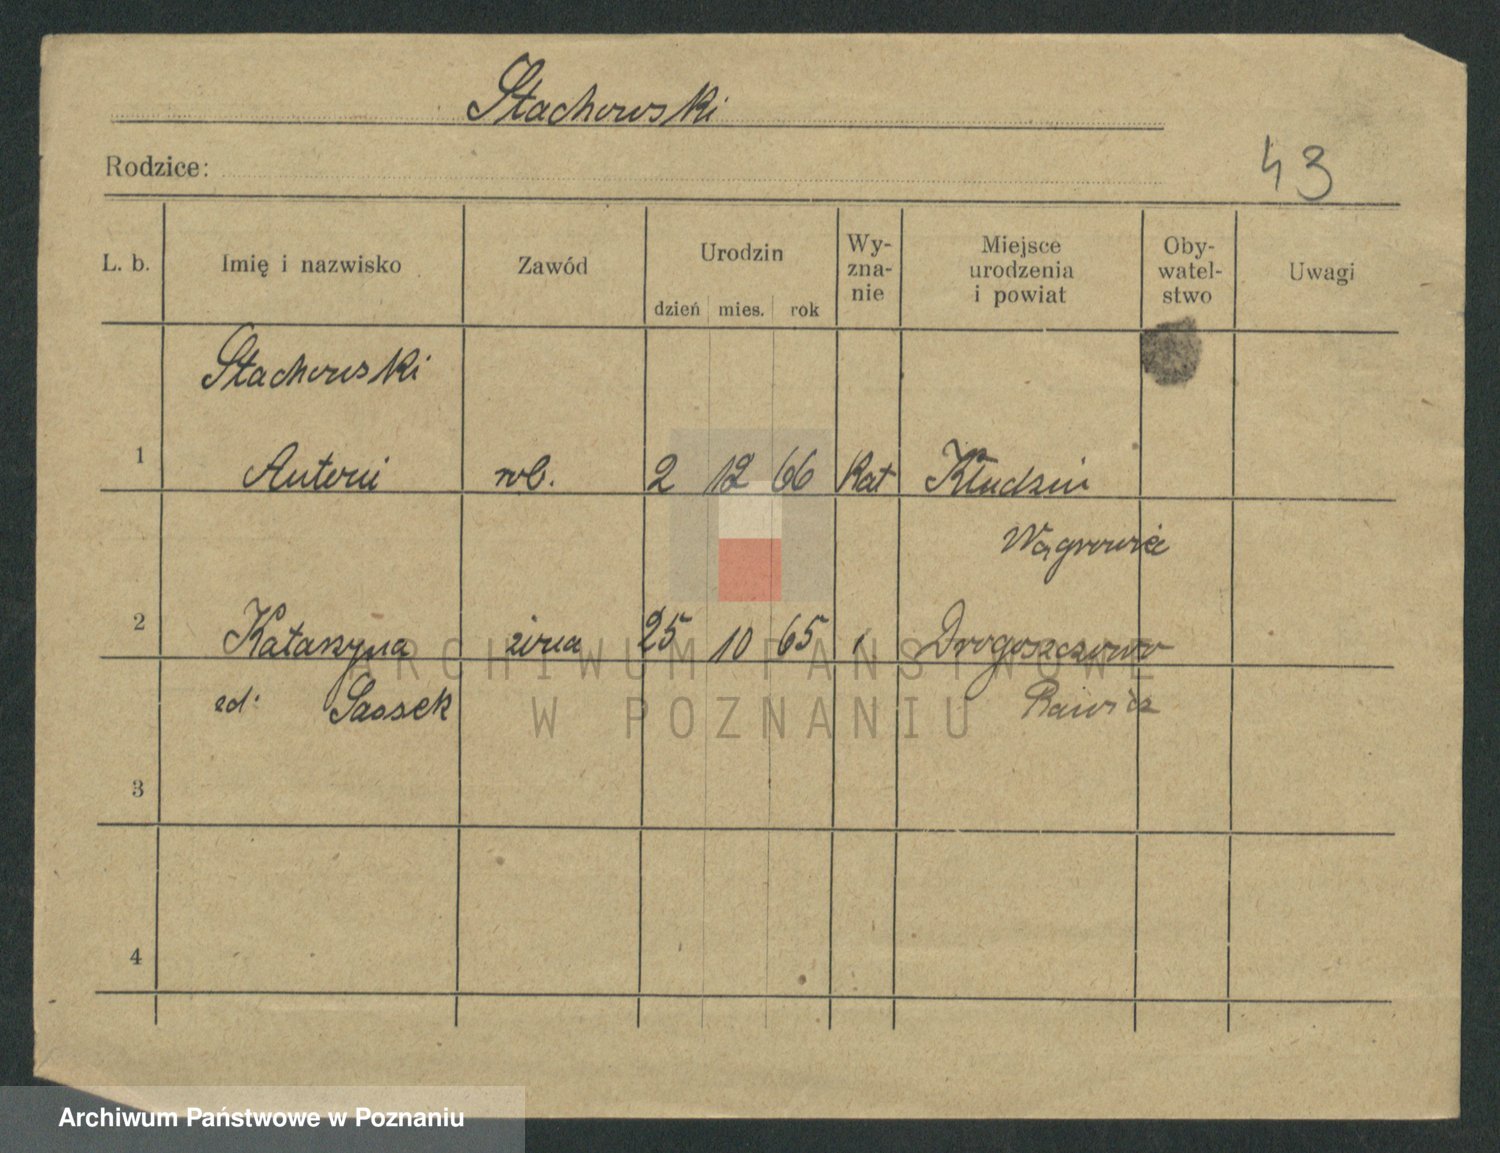 Stachowski
Rodzice:
43
L. b. Imię i nazwisko Zawód Urodzin dzień mies. rok Wy-zna-nie Miejsce urodzenia i powiat Oby-watel-stwo Uwagi
Stachowski
1 Antoni rob. 2 12 66 kat Kłudzin
Wągrowiec
2 Katarzyna żona 25 10 65 Drogoszewo
zd. Sassek Rawicz
3
4
ARCHIWUM PAŃSTWOWE
W POZNANIU
Archiwum Państwowe w Poznaniu